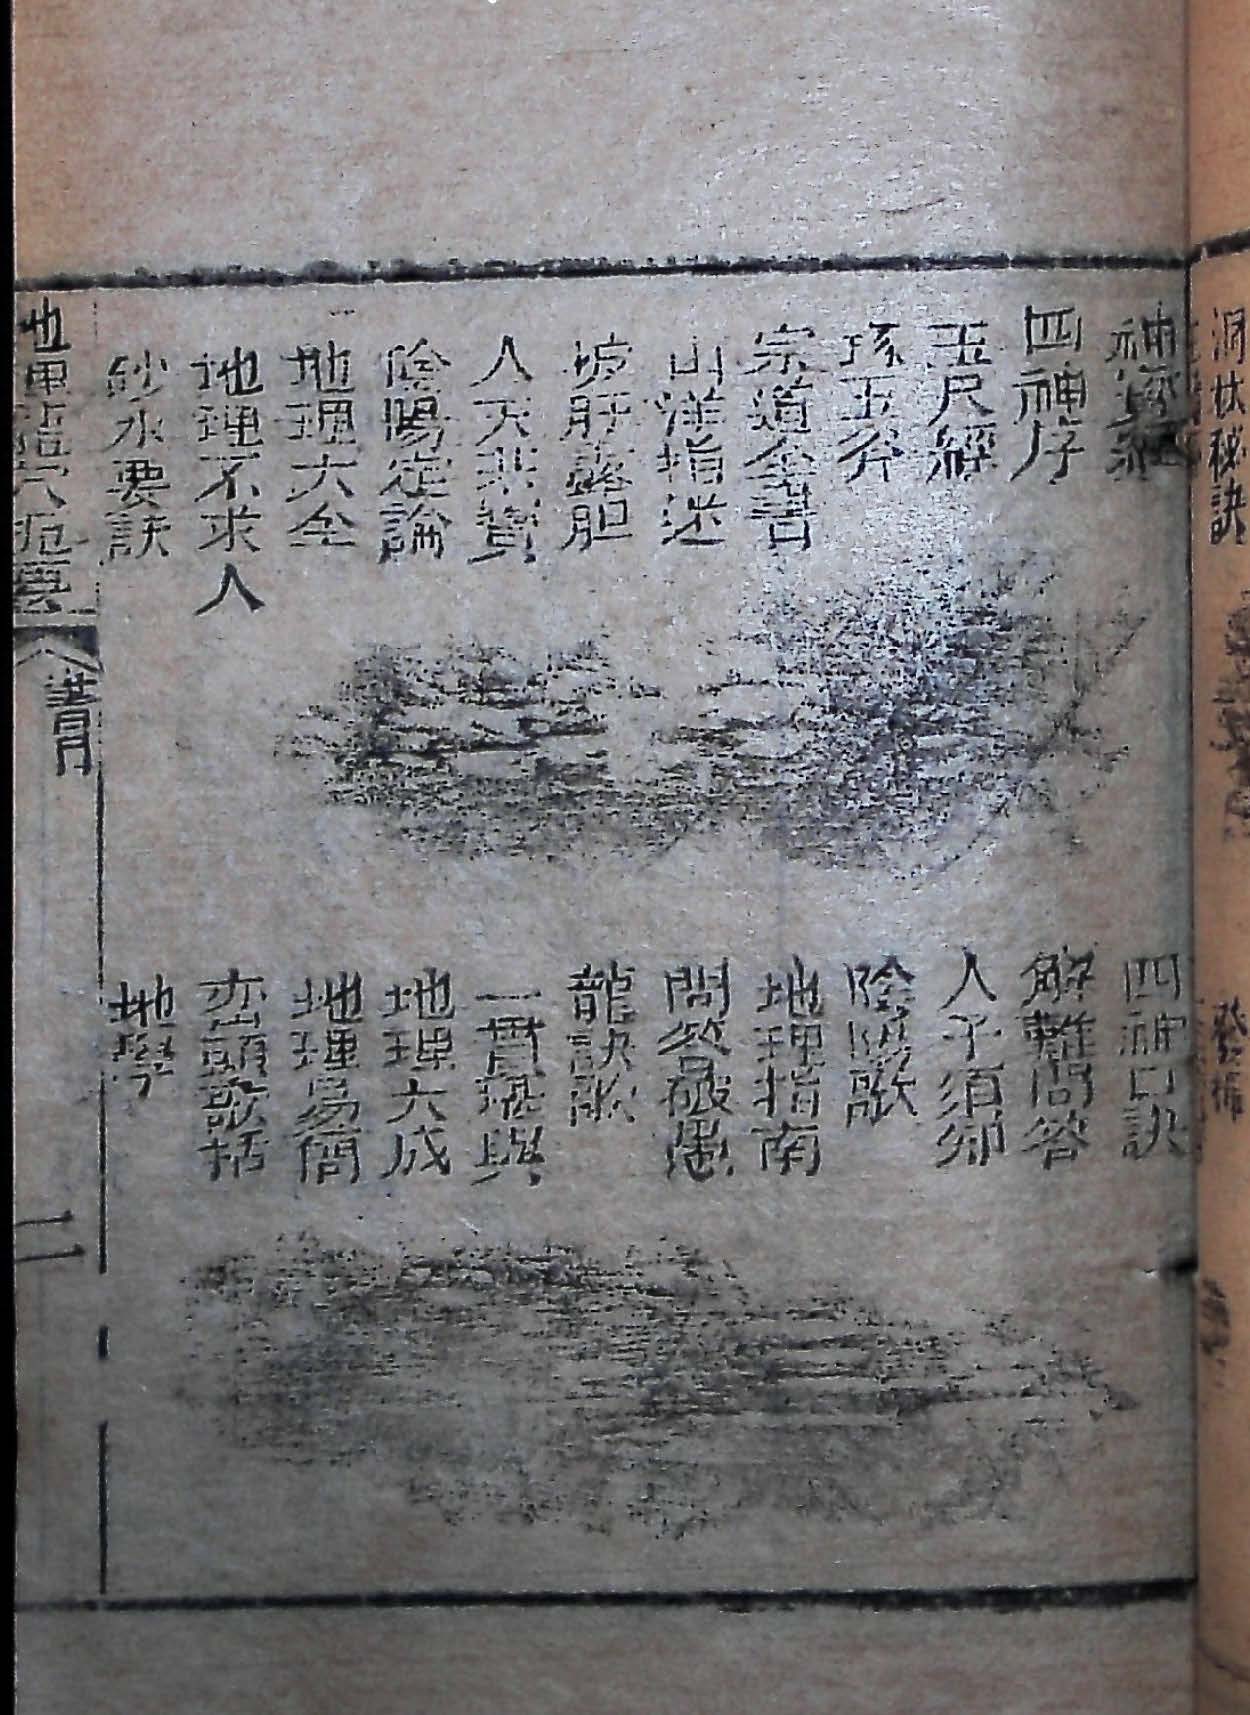 洞林秘訣
發揮
神寶經
四神口訣
四神序
解難問答
玉尺經
人子須知
琢玉斧
陰陽歌
宗道全書
地理指南
山洋指迷
問答破愚
披肝露胆
龍訣歌
人天共寶
一貫堪輿
陰陽定論
地理大成
地理大全
地理易簡
地理不求人
巒頭歌括
鈔水要訣
地學
地理 穴 書目
二